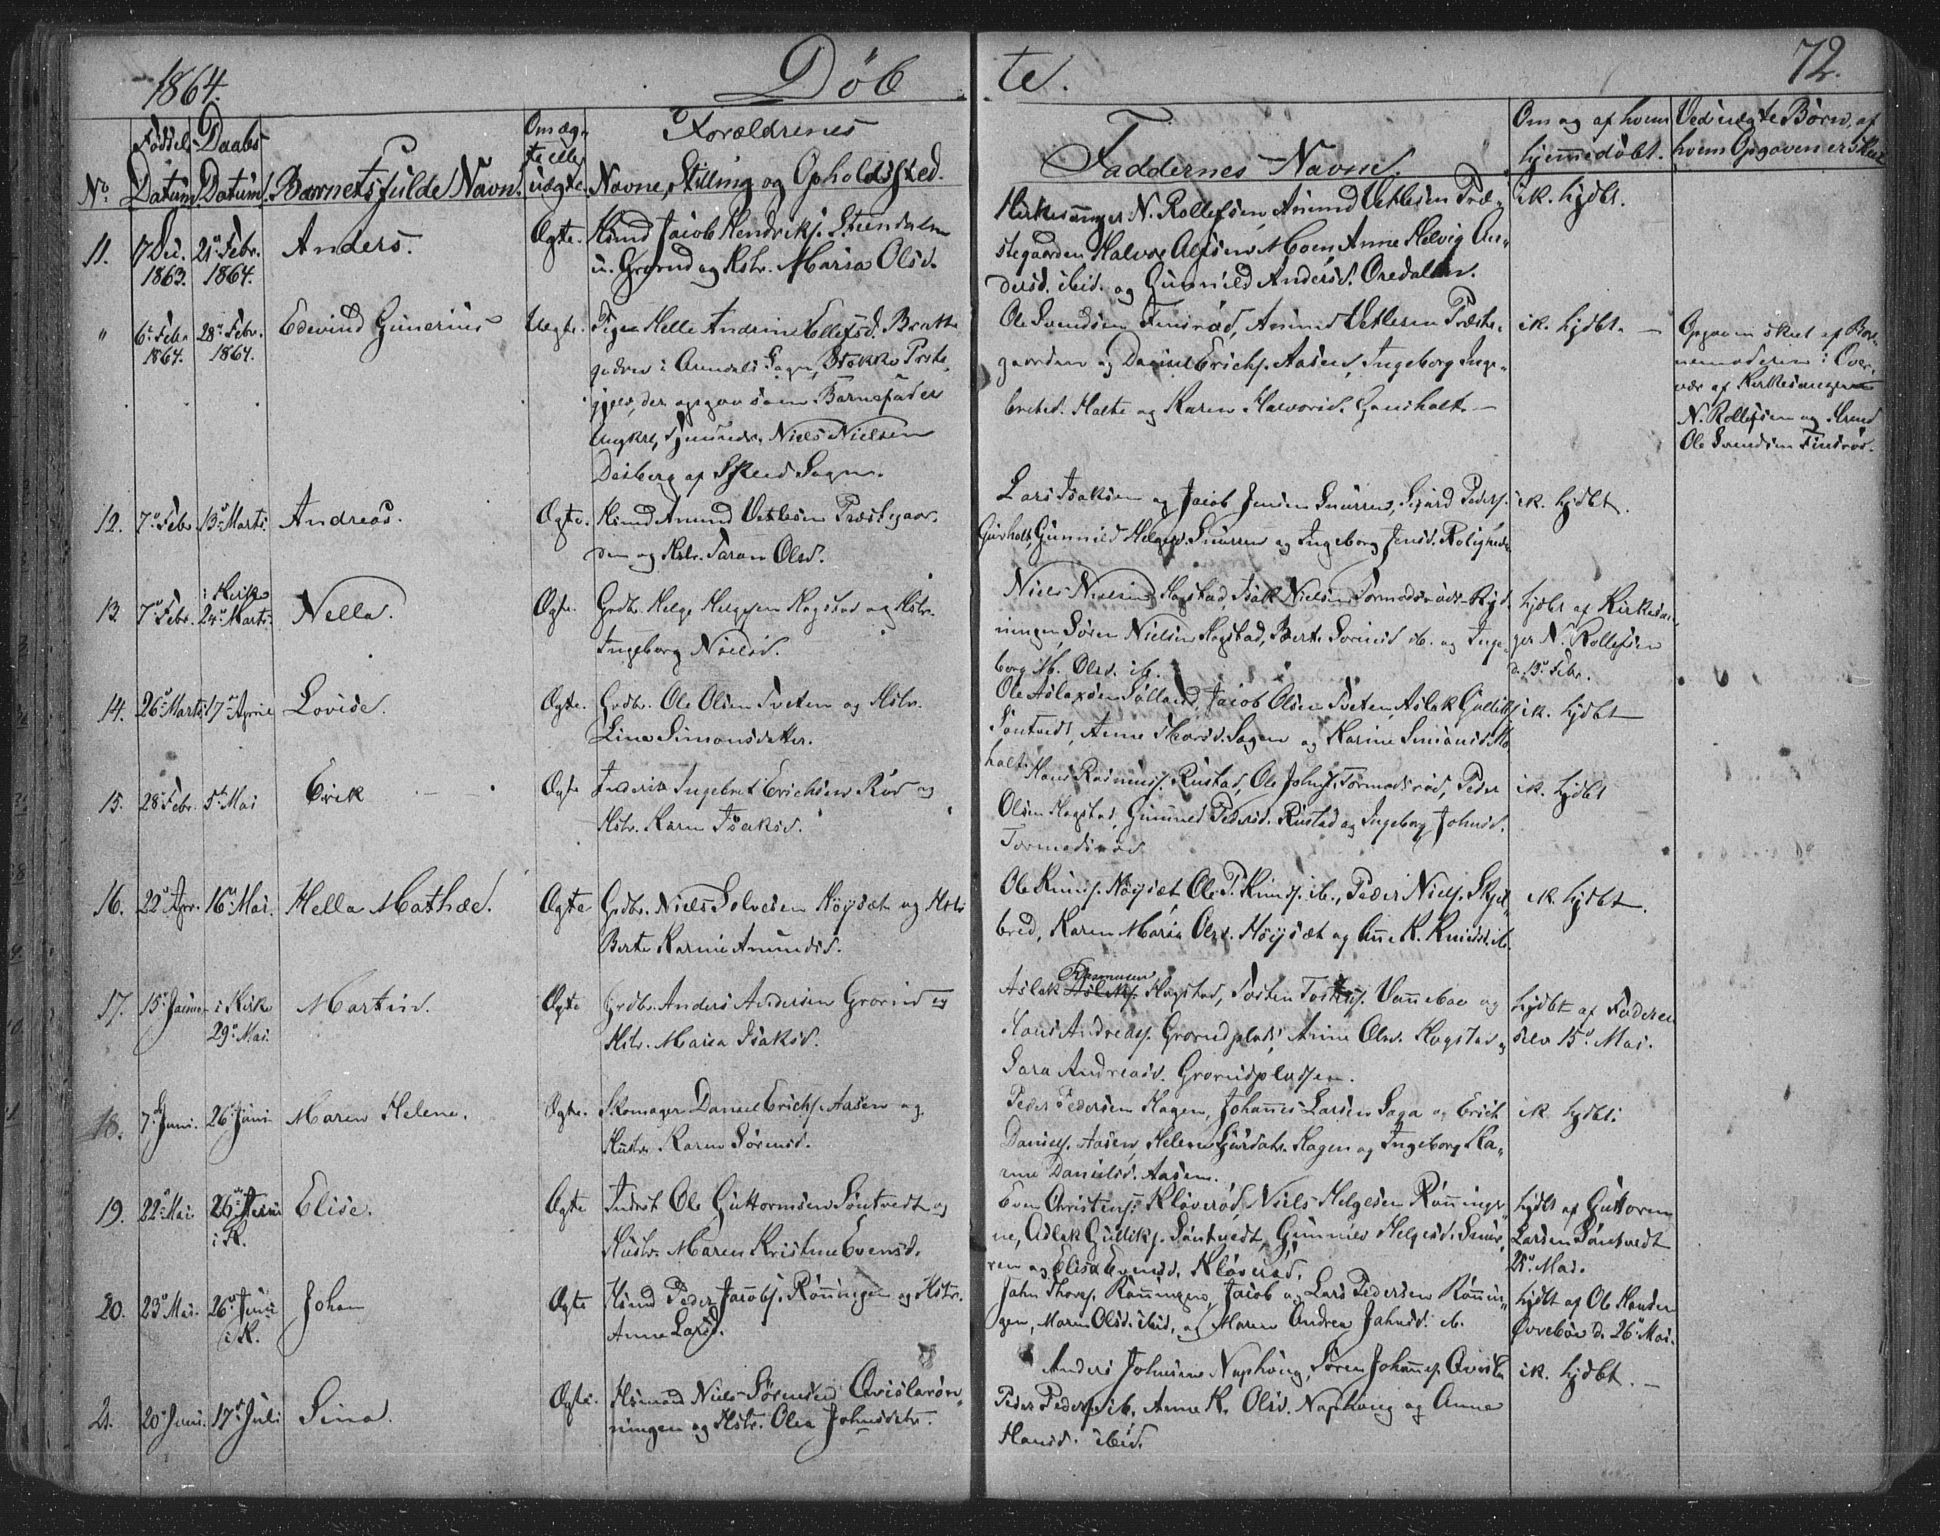 1864.
Døbte.
72.
No.
Fødsels Datum.
Daabs Datum.
Barnets fulde Navn.
Om ægte eller uægte.
Forældrenes
Navne, Stilling og Opholdssted.
Faddernes Navne.
Om og af hvem
hjemmedøbt.
Ved uægte Børn, af
hvem Opgaven er skeet
11.
7 Dec.
1863.
21 Febr.
1864.
Anders.
Ægte.
Hsmd Jacob Hendriks.
u. Grorud og Hstr. Maria Olsd.
Kirkesanger N. Rollefsen, Amund Vetlesen Præ-
stegaarden Halvor Alfsen Moen, Anne Helvig An-
dersd. ibid. og Gunnild Andersd. Oredalen.
ik. hjdbt.
"
6 Febr.
1864.
28 Febr.
1864.
Edevind Gunerius
Uegte.
Pige Helle Andrine Ellefsd. Bratte-
i Arendals Sogn,
der opgav som Barnefader
Ungkrl, Sjømand Niels Nielsen
af Skeid Sogn.
Ole Svendsen Finsrød, Amund Vetlesen Præste-
gaarden og Daniel Erichs. Aasen, Ingeborg Inge-
bretsd. Holte og Karen Halvorsd. Gonsholt. —
ik. hjdbt. —
Opgaven skeet af Bar-
nemoderen i Over-
vær af Kirkesangeren
N. Rollefsen og Hsmd
Ole Svendsen Finsrød.
12.
7 Febr.
13 Marts.
Andreas.
Ægte.
Hsmd Amund Vetlesen Præstegaar-
den og Hstr. Taran Olsd.
Lars Isaksen og Jacob Jensen Snurren, Sivard Peders.
Gurholt, Gunnild Helgesd. Snurren og Ingeborg Jensd. Roligheden
ik. hjdbt.
13.
7 Febr.
i Kirke
24 Marts.
Nella.
Ægte.
Grdbr. Helge Helgesen Hogstad og Hstr.
Ingeborg Nielsd.
Niels Nielsen Hogstad, Isak Nielsen Tormodsrød-Ryd-
ningen, Søren Nielsen Hogstad, Berte Sorine ib. og Inge-
borg M. Olsd. ib.
hjdbt af Kirkesan-
ger N. Rollefsen
d. 13 Febr.
14.
26 Marts
17 Aprie
Lovise.
Ægte.
Grdbr. Ole Olsen Tveten og Hstr.
Lina Simonsdatter.
Ole Aslaxsen Sølland, Jacob Olsen Tveten, Aslak Gulliks.
Sontvedt, Anne Thorsd. Sagen og Karine Simonsd. Mo-
holt.
ik. hjdbt
15.
28 Febr.
5 Mai
Erik
Ægte
Inderst Ingebret Erichsen Rød og
Hstr. Karen Isaksd.
Hans Rasmuss. Rustad, Ole Johns. Tormodsrød, Peder
Olsen Hogstad, Gunnild Pedersd. Rustad og Ingeborg Johnsd.
Tormodsrød
ik. hjdbt
16.
22 Apr.
16 Mai.
Hella Mathæa.
Ægte
Grdbr. Niels Solvesen Høysæt og Hstr
Berte Karine Amundsd.
Ole Knuds. Høysæt, Ole P. Knuds. ib., Peder Niels. Skjel-
bred, Karen Maria Olsd. Høysæt og Ane K. Knudsd. ib.
ik. hjdbt.
17.
15 Januar
i Kirke
29 Mai.
Martin.
Ægte
Grdbr. Anders Andersen Grorud og
Hstr. Maria Isaksd.
Aslak Rasmusen Hogstad, Torsten Torsens. Vannebo og
Hans Andreas. Grorudplads, Anne Olsd. Hogstad og
Sara Andreasd. Grorudpladsen.
hjdbt af Faderen
selv 15 Mai.
18.
7 Juni.
26 Juni
Maren Helene.
Ægte.
Skomager Daniel Erichs. Aasen og
Hustr. Karen Sørensd.
Peder Pedersen Hagen, Johannes Larsen Saga og Erich
Daniels. Aasen, Helene Hagen og Ingeborg Ka-
rine Danielsd. Aasen.
ik hjdbt.
19.
22 Mai.
26 Juni
i K.
Elise.
Ægte
Indrst Ole Guttormsen Sontvedt og
Hustr. Maren Kristine Evensd.
Even Christens. Kloverød, Niels Helgesen Rønninge-
ne, Aslak Gulliks. Sontvedt, Gunnild Helgesd. Snur-
ren og Elisa Evensd. Kloverød.
hjdbt af Guttorm
Larsen Sontvedt
25 Mai.
20.
23 Mai.
26 Juni
i K.
Johan
Ægte
Hsmd Peder Jacobs. Rønningen og Hstr.
Anne Larsd.
John Thors. Rønningen, Jacob og Lars Pedersen Rønnin-
gen, Maren Olsd. ibid, og Maren Andrea Johnsd. ib.
hjdbt af Ole Hansen
Øvrebøe d. 26 Mai.
21.
20 Juni.
17 Juli
Sina.
Ægte.
Husmand Niels Sørensen Qvislarøn-
ningen og Hstr. Olea Johnsdatr.
Anders Johnsen Naphoug, Søren Johans. Qvisla
Peder Peders. ib. Anne K. Olsd. Naphoug og Anne
Hansd. ibid.
ik. hjdbt. —